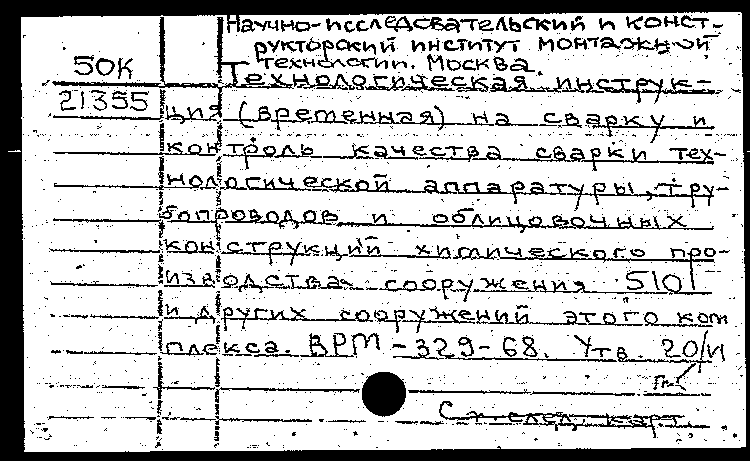 Научно-исследовательский и конст-
рукторский институт монтажной
технологии. Москва.
50К
Технологическая инструк-
21355
ция (временная) на сварку и
контроль качества сварки тех-
нологической аппаратуры, тру-
бопроводов и облицовочных
конструкций химического про-
изводства сооружения 5101
и других сооружений этого ком
плекса. ВРМ-329-68. Утв. 20/VI
См. след. карт.